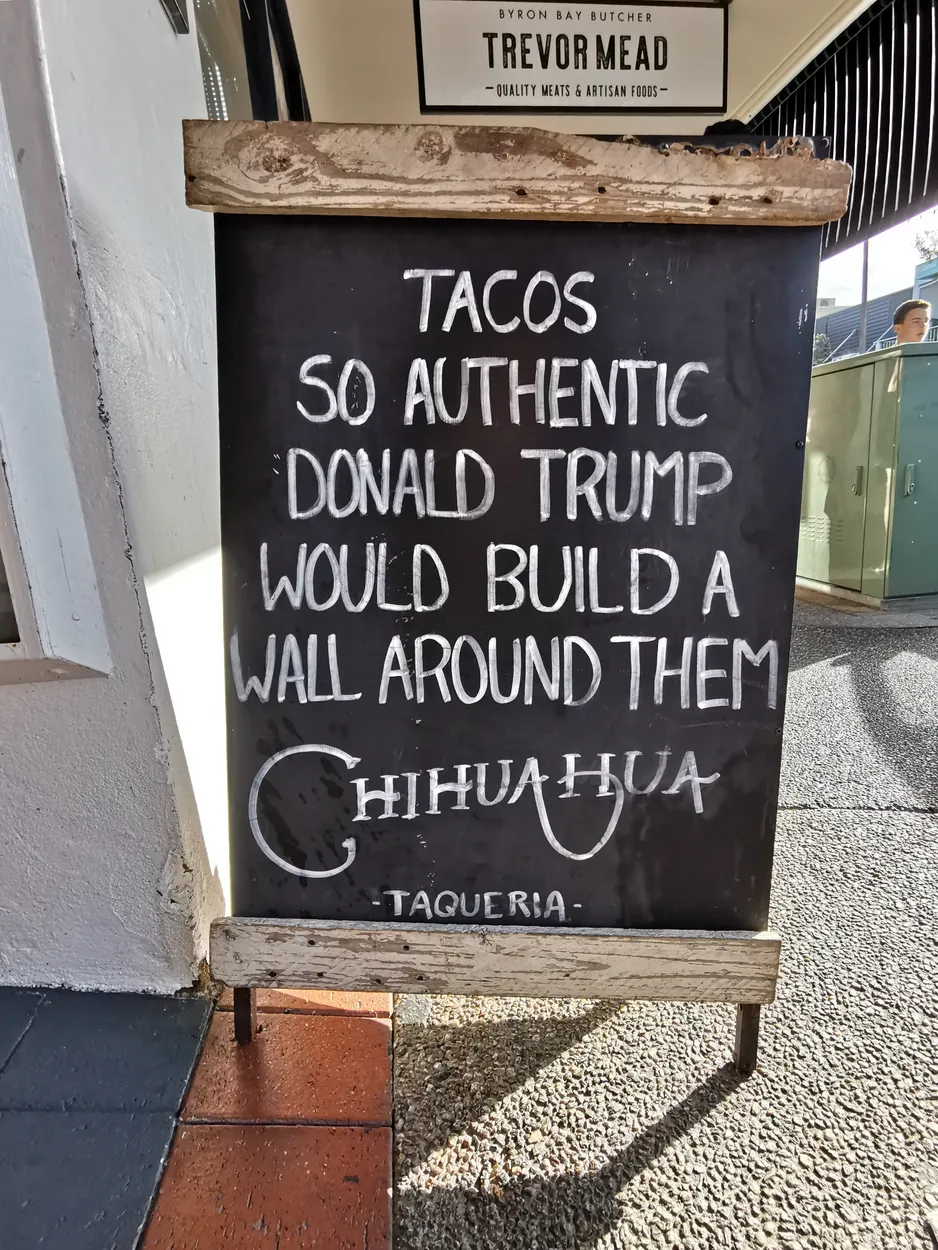 BYRON BAY BUTCHER
TREVOR MEAD
-QUALITY MEATS & ARTISAN FOODS-
TACOS
SO AUTHENTIC
DONALD TRUMP
WOULD BUILD A
WALL AROUND THEM
CHIHUAHUA
-TAQUERIA-